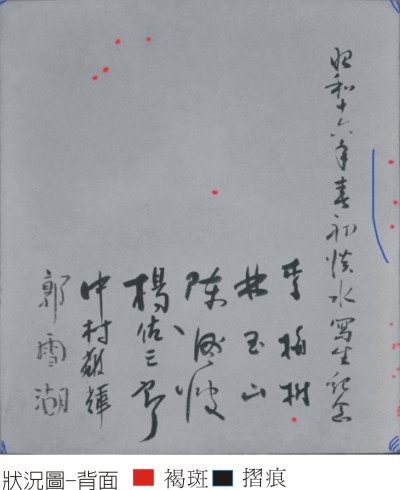 昭和十六年春初淡水寫生紀念
李梅樹
林玉山
陳澄波
楊佐三郎
中村敬輝
郭雪湖
狀況圖-背面 褐斑 摺痕